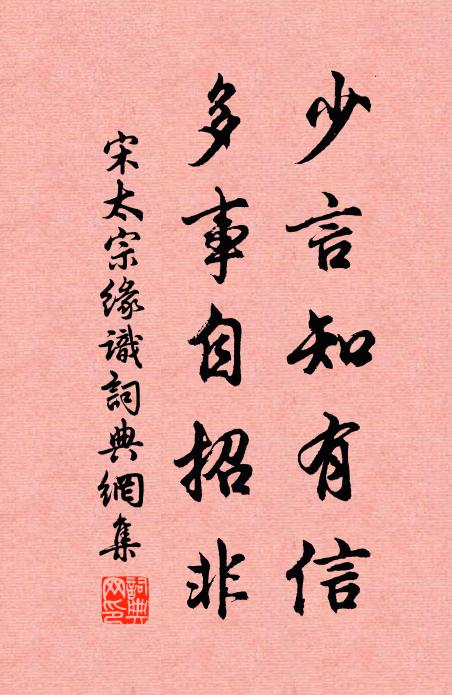 少言知有信
多事自招非
宋太宗緣識詞典網集
詞典網印